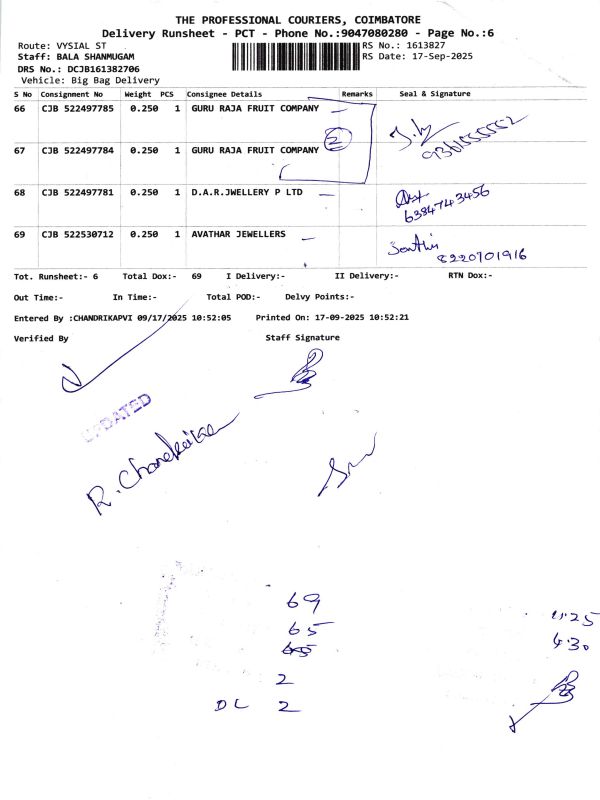 THE PROFESSIONAL COURIERS, COIMBATORE
Delivery Runsheet - PCT - Phone No.:9047080280 - Page No.:6
Route: VYSIAL ST RS No.: 1613827
Staff: BALA SHANMUGAM RS Date: 17-Sep-2025
DRS No.: DCJB161382706
Vehicle: Big Bag Delivery
S No Consignment No Weight PCS Consignee Details Remarks Seal & Signature
66 CJB 522497785 0.250 1 GURU RAJA FRUIT COMPANY
2
9361555552
67 CJB 522497784 0.250 1 GURU RAJA FRUIT COMPANY
68 CJB 522497781 0.250 1 D.A.R.JWELLERY P LTD
6384743456
69 CJB 522530712 0.250 1 AVATHAR JEWELLERS
8220701916
Tot. Runsheet:- 6 Total Dox:- 69 I Delivery:- II Delivery:- RTN Dox:-
Out Time:- In Time:- Total POD:- Delvy Points:-
Entered By :CHANDRIKAPVI 09/17/2025 10:52:05 Printed On: 17-09-2025 10:52:21
Verified By Staff Signature
UPDATED
69
65
2
DL 2
4.30